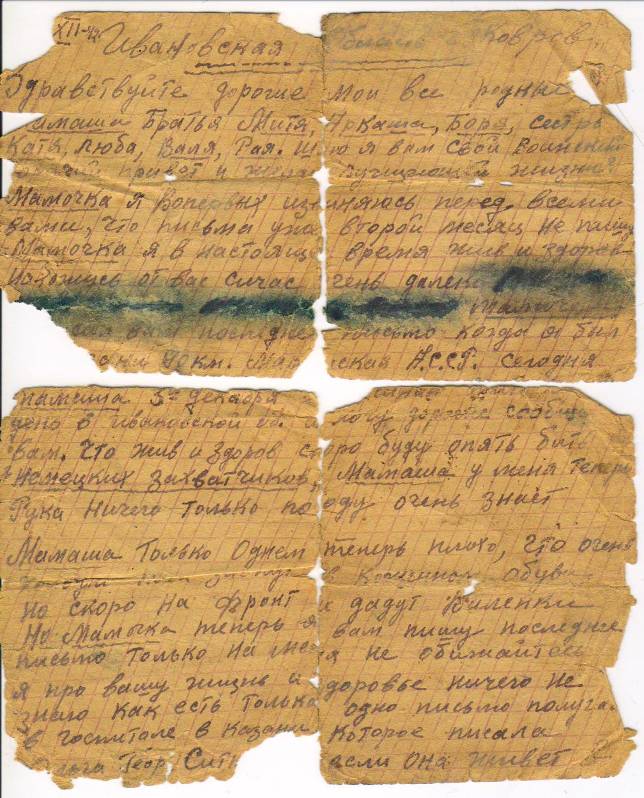 XII-42
Ивановская Область г. Ковров
Здравствуйте дорогие мои все родные
мамаша Братья Митя, Аркаша, Боря, сестры
Катя, Люба, Валя, Рая. Шлю я вам свой Воинский
привет и жела
Мамочка я Вопервых извиняюсь перед всеми
вами, что письма уже второй месяц не пишу
Мамочка я в настояще время жив и здоров
нахожусь от вас сичас очень далеко
Мамочка
вам последнее письмо когда я был
Казани 90 км. Мар ская А.С.С.Р. Сегодня
мамаша 5го декабря
день в Ивановской об. и могу дорогие сообщи
вам. Что жив и здоров скоро буду опять бить
Немецких захватчиков, Мамаша у меня теперь
Рука ничего только погоду очень знает
Мамаша Только Однем теперь плохо, что очень
в обуви
но скоро на фронт и дадут Виленки
Но Мамочка теперь я вам пишу последнее
письмо только на меня не обижайтесь
я про вашу жизнь и здоровье ничего не
знаю как есть только одно письмо получа
в госпитоле в Казани которое писала
Ольга Геор Сит если она живет